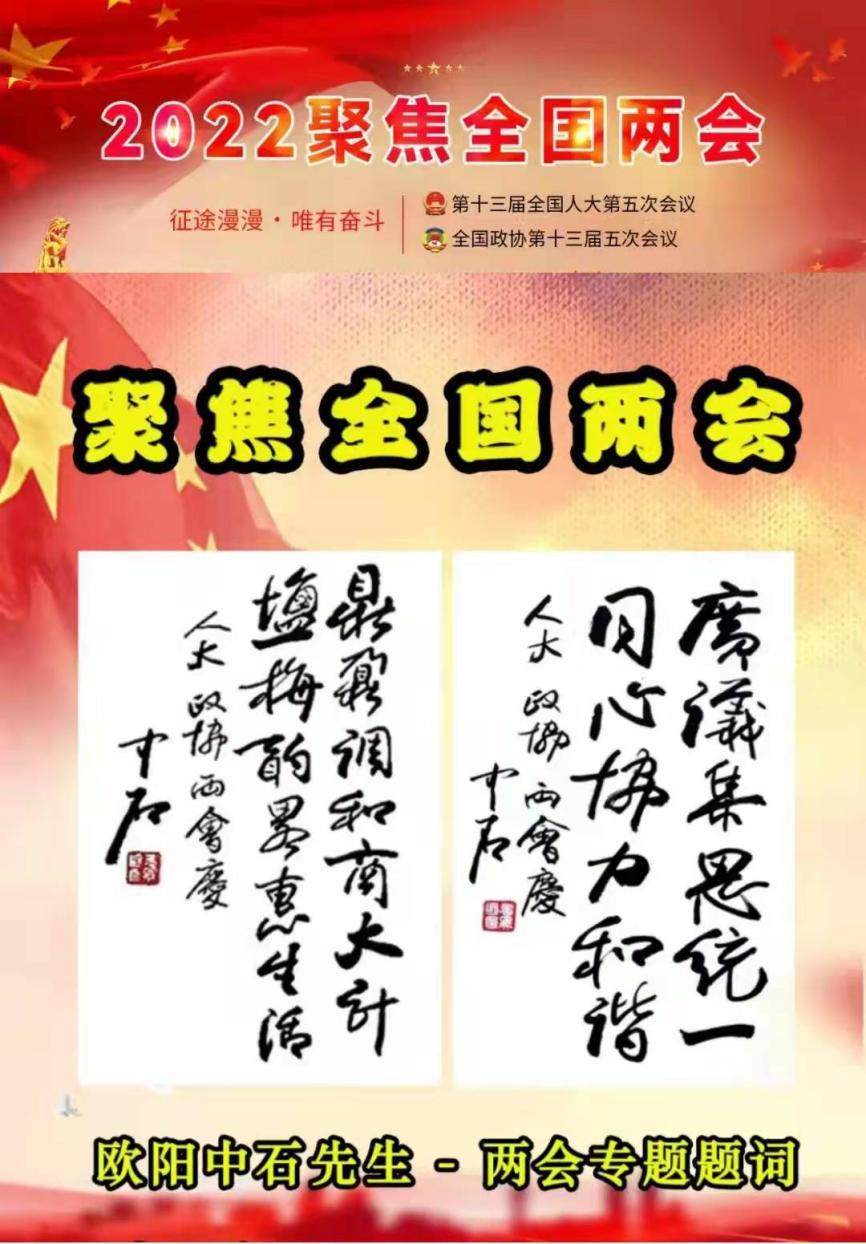 2022聚焦全国两会
征途漫漫·唯有奋斗
第十三届全国人大第五次会议
全国政协第十三届五次会议
聚焦全国两会
廣議集思統一
同心協力和谐
人大 政協 两會慶
中石
鼎鼐调和商大计
塩梅韵畧惠生活
人大 政協 两會慶
中石
欧阳中石先生 - 两会专题题词